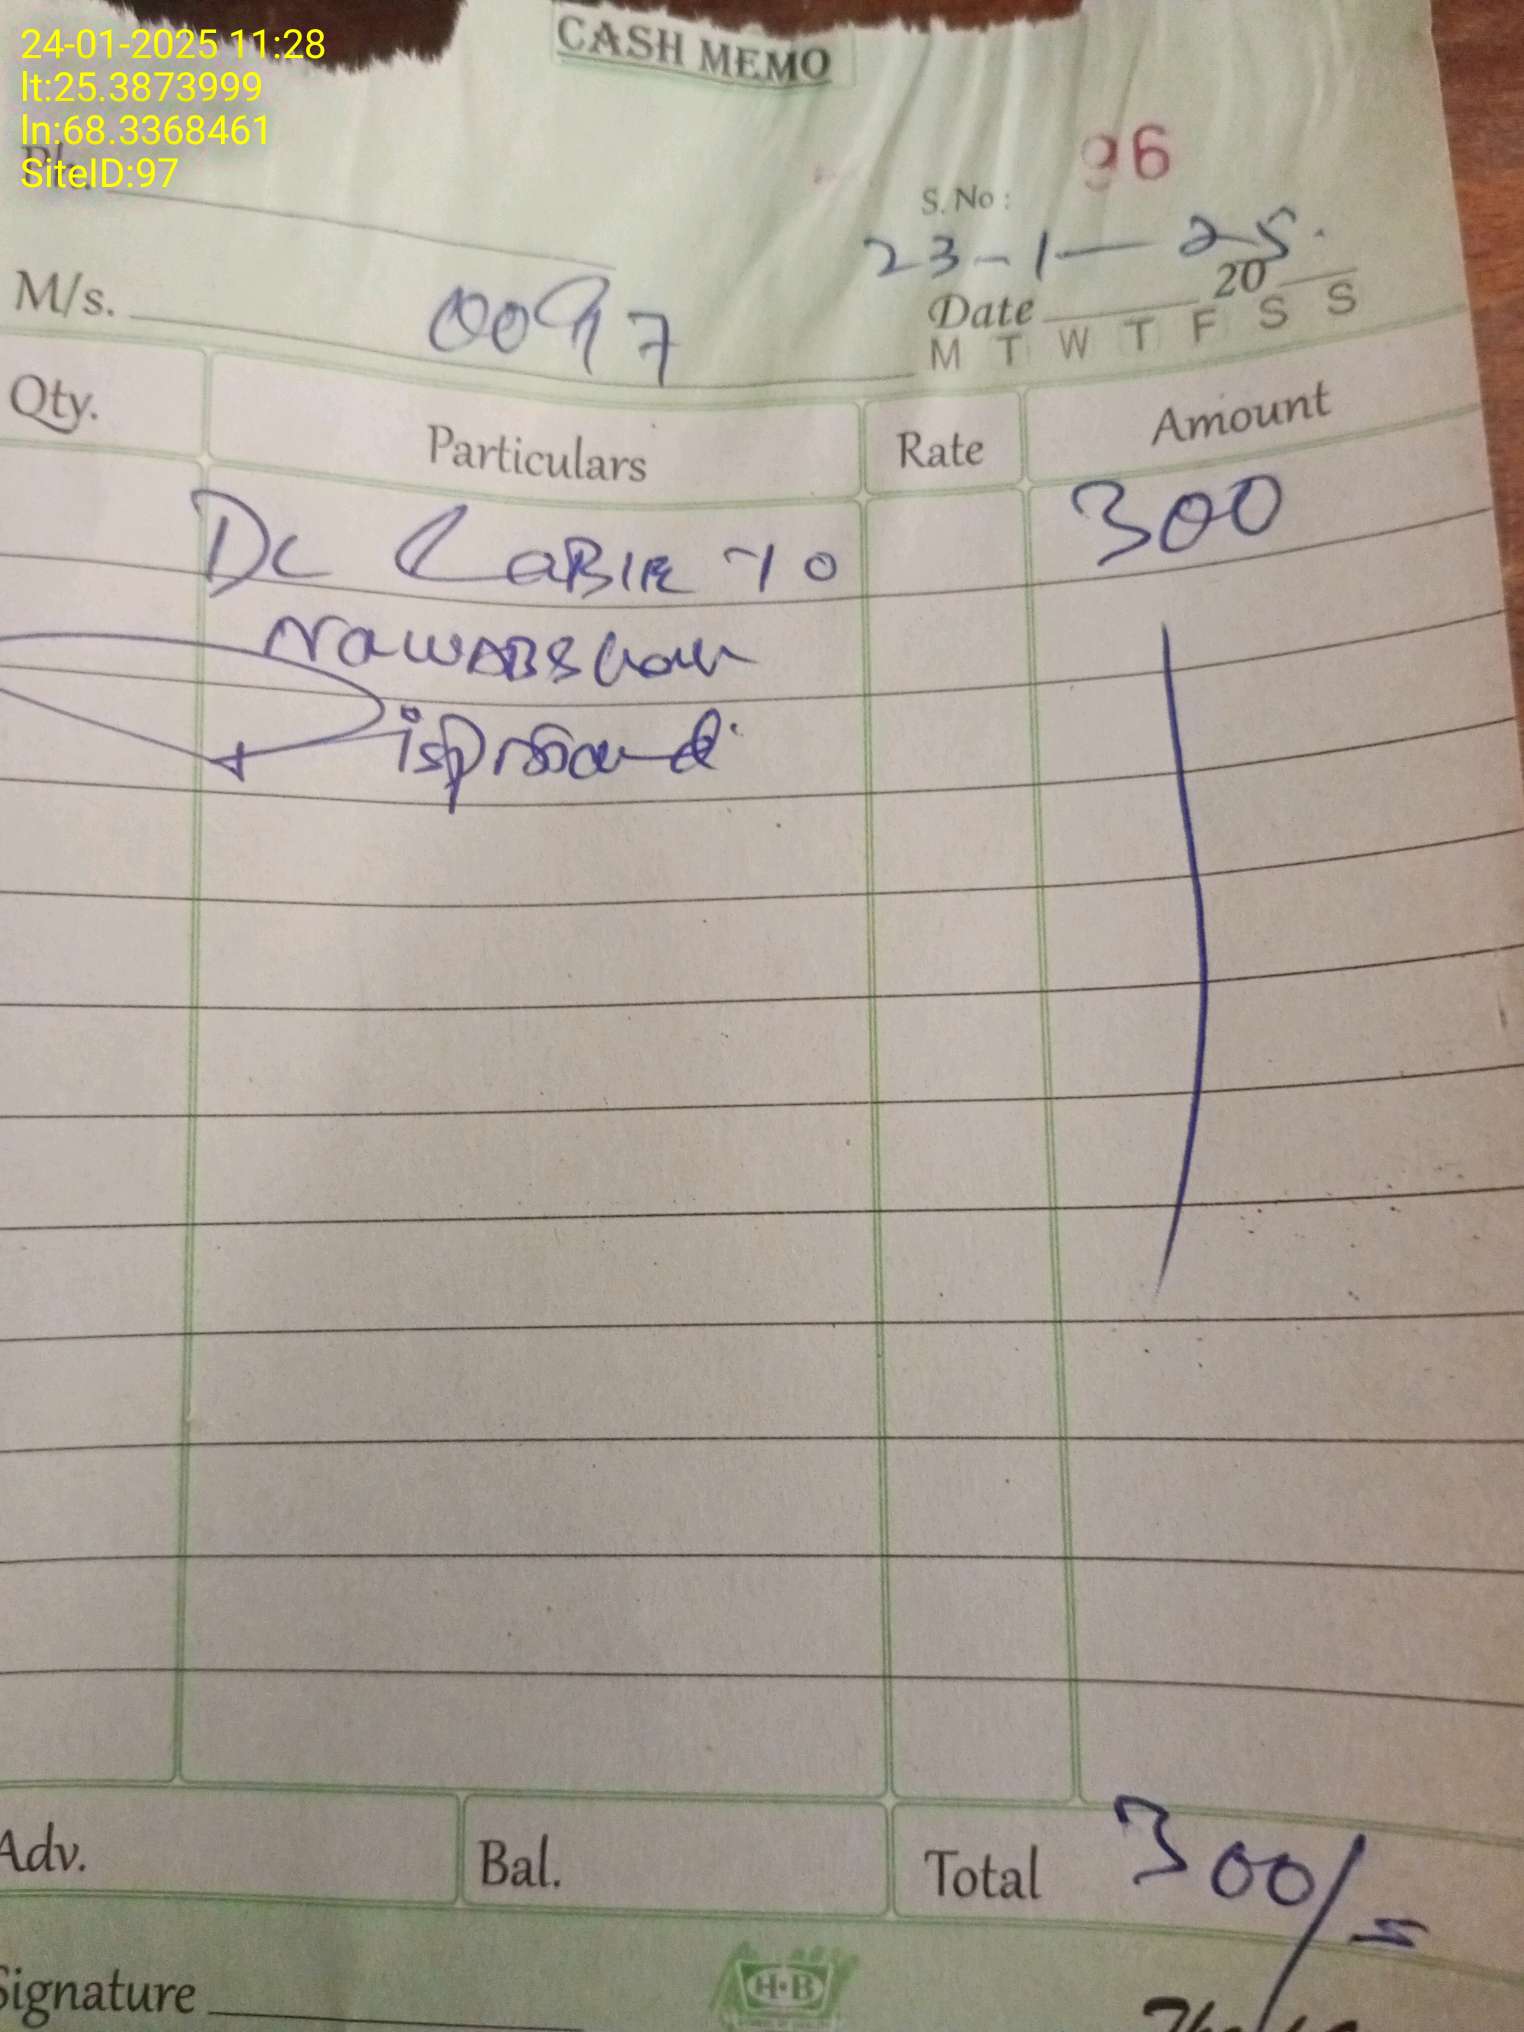 24-01-2025 11:28
lt:25.3873999
ln:68.3368461
SiteID:97
CASH MEMO
Ph.
S. No : 96
23-1-25.
Date 20
M/s. 0097
M T W T F S S
Qty. Particulars Rate Amount
DC CaBle To 300
NawABShah
Adv. Bal. Total 300/=
Signature
H·B